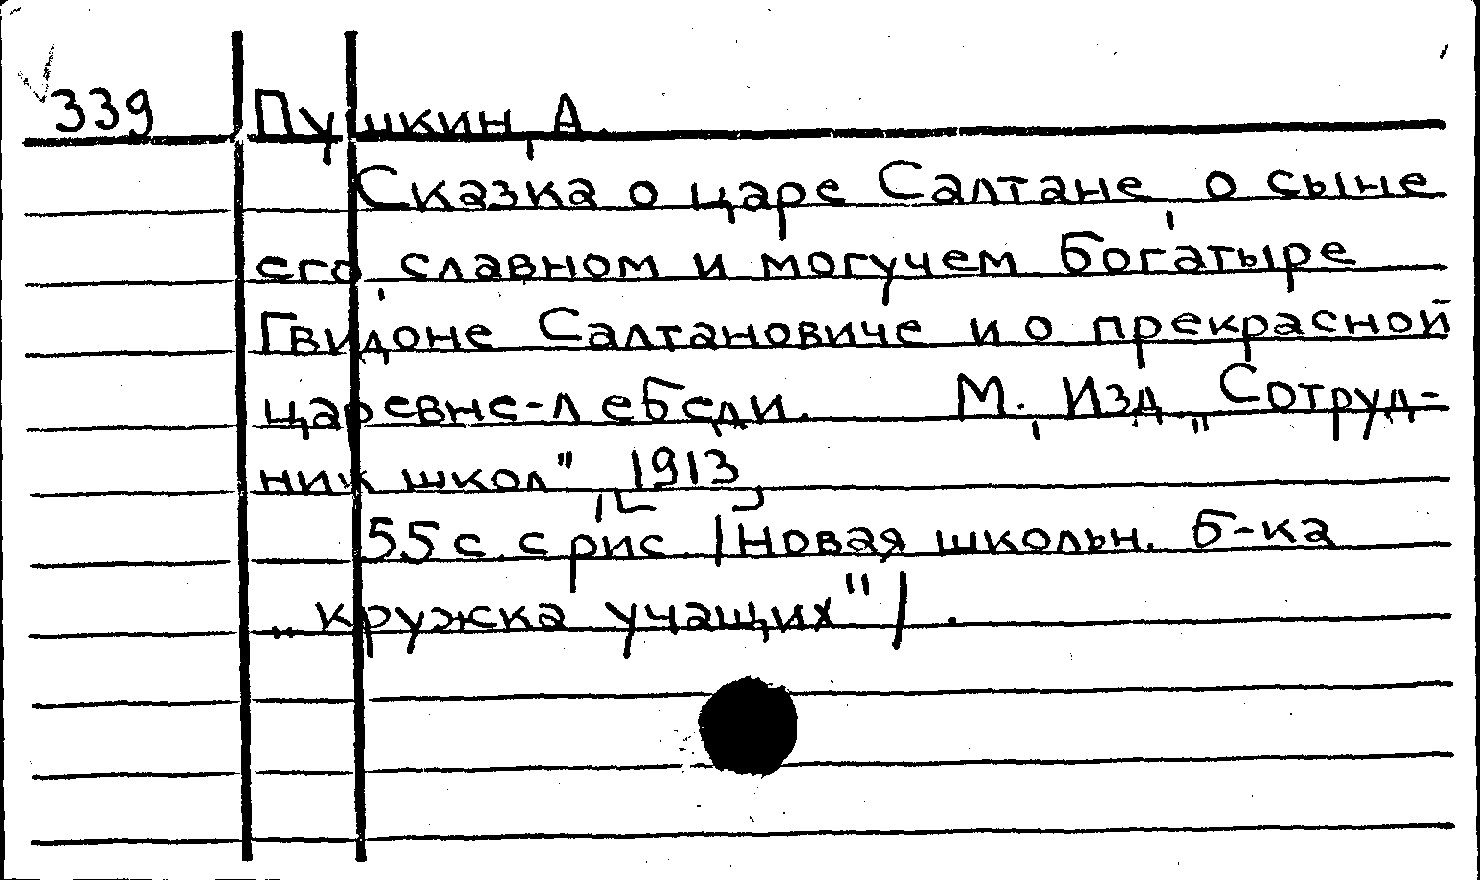 339 Пушкин, А.
Сказка о царе Салтане, о сыне
его, славном и могучем богатыре
Гвидоне Салтановиче и о прекрасной
царевне-лебеди. М., Изд. „Сотруд-
ник школ", [1913]
55 с. с рис. /Новая школьн. б-ка
„кружка учащих"/.